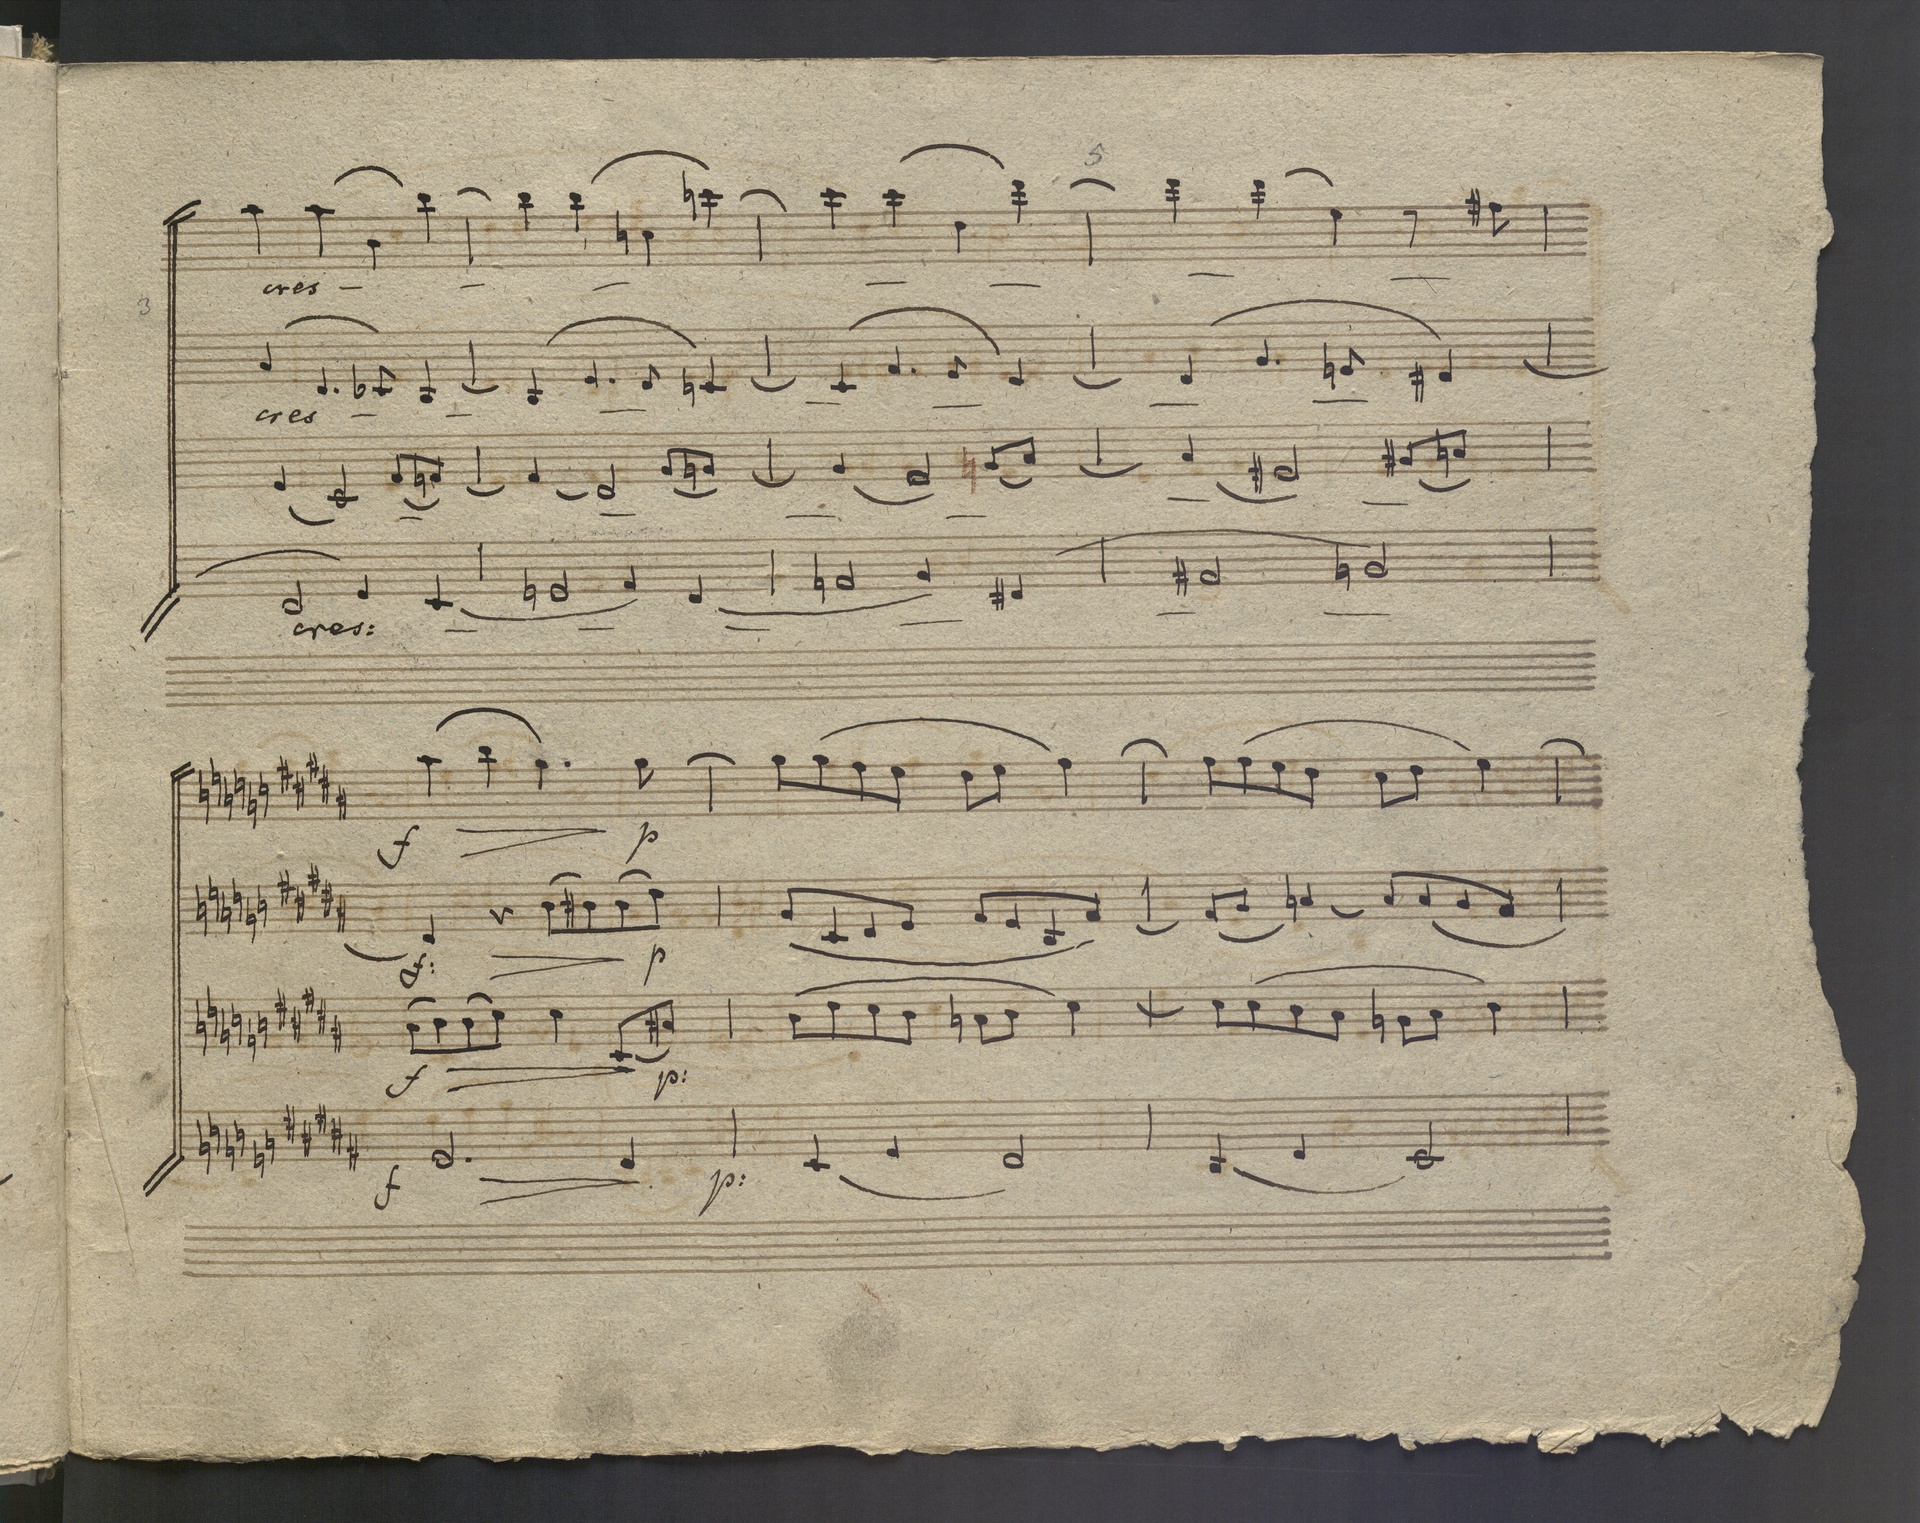 5
cres
3
cres
cres:
f p
f: p
f p:
f p: